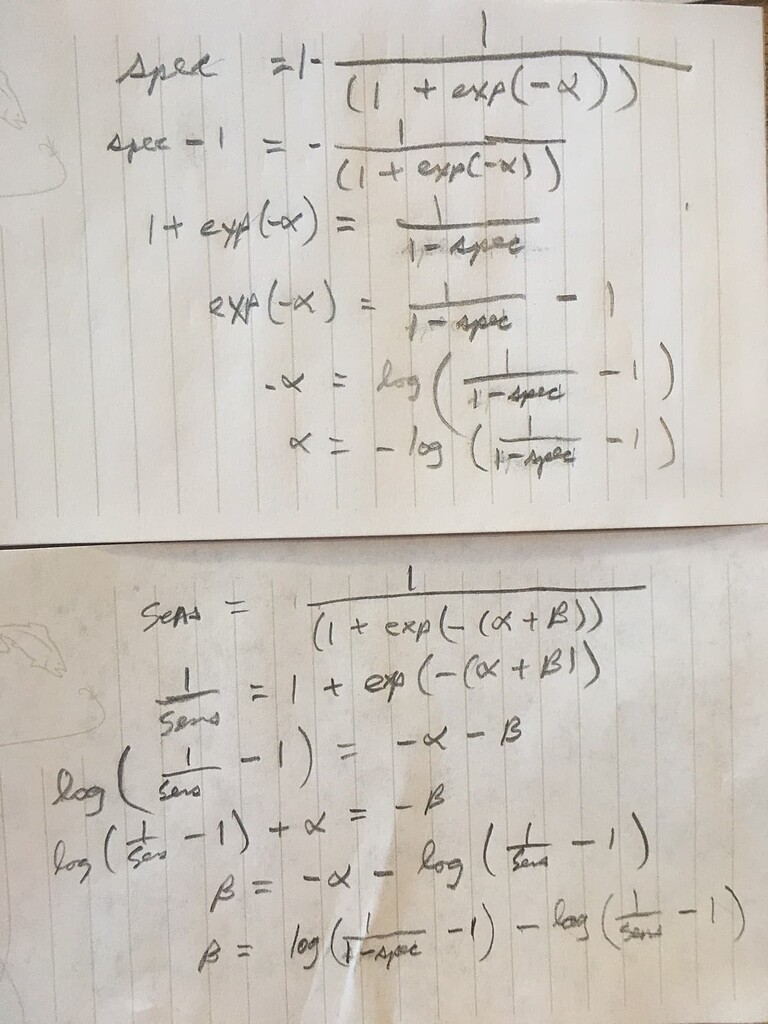 spec = 1 - 1/(1 + exp(-α))
spec - 1 = - 1/(1 + exp(-α))
1 + exp(-α) = 1/(1 - spec)
exp(-α) = 1/(1 - spec) - 1
-α = log(1/(1 - spec) - 1)
α = - log(1/(1 - spec) - 1)
Sens = 1/(1 + exp(-(α + β))
1/Sens = 1 + exp(-(α + β))
log(1/Sens - 1) = -α - β
log(1/Sens - 1) + α = -β
β = -α - log(1/Sens - 1)
β = log(1/(1 - spec) - 1) - log(1/Sens - 1)